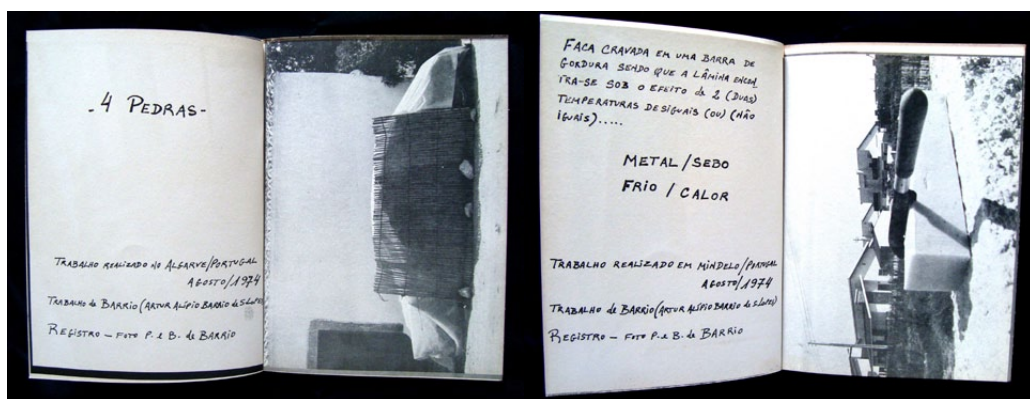 - 4 PEDRAS -
TRABALHO REALIZADO NO ALGARVE/PORTUGAL
AGOSTO/1974
TRABALHO de BARRIO (ARTUR ALÍPIO BARRIO de S. LOPES)
REGISTRO - FOTO P. e B. de BARRIO
FACA CRAVADA EM UMA BARRA DE
GORDURA SENDO QUE A LÂMINA ENCON
TRA-SE SOB O EFEITO de 2 (DUAS)
TEMPERATURAS DESIGUAIS (OU) (NÃO
IGUAIS).....
METAL / SEBO
FRIO / CALOR
TRABALHO REALIZADO EM MINDELO/PORTUGAL
AGOSTO/1974
TRABALHO de BARRIO (ARTUR ALÍPIO BARRIO de S. LOPES)
REGISTRO - FOTO P. e B. de BARRIO